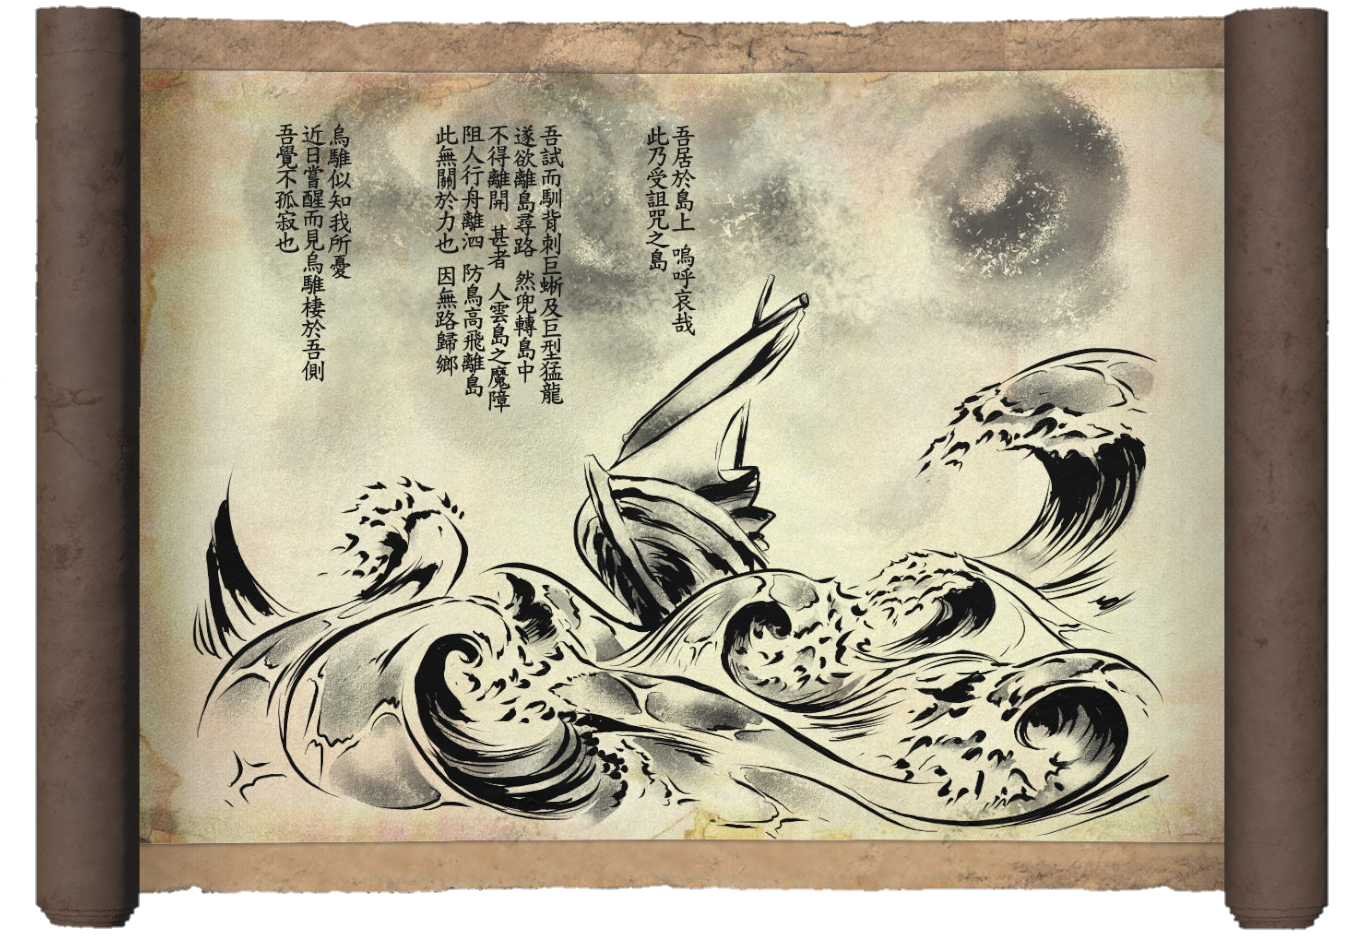 吾居於島上 嗚呼哀哉
此乃受詛咒之島
吾試而馴背刺巨蜥及巨型猛龍
遂欲離島尋路 然兜轉島中
不得離開 甚者 人雲島之魔障
阻人行舟離泗 防鳥高飛離島
此無關於力也 因無路歸鄉
烏騅似知我所憂
近日嘗醒而見烏騅棲於吾側
吾覺不孤寂也